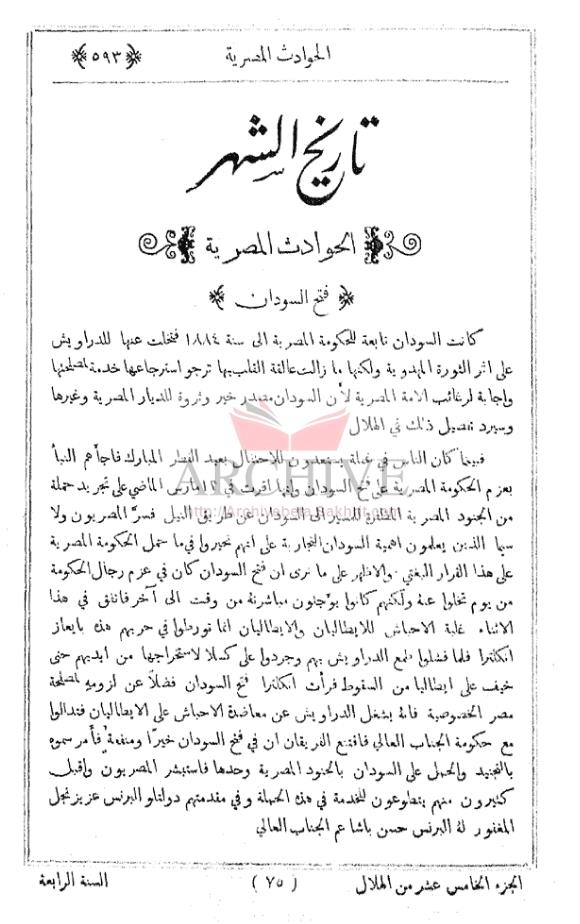 الحوادث المصرية ﴿٥٩٣﴾
تاريخ الشهر
الحوادث المصرية
﴿ فتح السودان ﴾
كانت السودان تابعة للحكومة المصرية الى سنة ١٨٨٤ فتخلت عنها للدراويش
على اثر الثورة المهدوية ولكنها ما زالت عالقة القلب بها ترجو استرجاعها خدمة لمصلحتها
واجابة لرغائب الامة المصرية لأن السودان مصدر خير وثروة للديار المصرية وغيرها
وسيرد تفصيل ذلك في الهلال
فبينما كان الناس في غفلة يستعدون للاحتفال بعيد الفطر المبارك فاجأهم النبأ
بعزم الحكومة المصرية على فتح السودان وانها اقرت في مارس الماضي على تجريد حملة
من الجنود المصرية للمسير الى السودان عن طريق النيل فسرَّ المصريون ولا
سيما الذين يعلمون اهمية السودان التجارية على انهم تحيروا في ما حمل الحكومة المصرية
على هذا القرار البغتي والاظهر على ما نرى ان فتح السودان كان في عزم رجال الحكومة
من يوم تخلوا عنه ولكنهم كانوا يؤجلون مباشرته من وقت الى آخر فاتفق في هذا
الاثناء غلبة الاحباش للايطاليان والايطاليان انما تورطوا في حربهم هذه بايعاز
انكلترا فلما فشلوا طمع الدراويش بهم وجردوا على كسلا لاستخراجها من ايديهم حتى
خيف على ايطاليا من السقوط فرأت انكلترا فتح السودان فضلاً عن لزومهِ لمصلحة
مصر الخصوصية فانهُ يشغل الدراويش عن معاضدة الاحباش على الايطاليان فتداولوا
مع حكومة الجناب العالي فاقتنع الفريقان ان في فتح السودان خيرًا ومنفعة فأمر سموه
بالتجنيد والحمل على السودان بالجنود المصرية وحدها فاستبشر المصريون واقبل
كثيرون منهم يتطوعون للخدمة في هذه الحملة وفي مقدمتهم دولتلو البرنس عزيز نجل
المغفور لهُ البرنس حسن باشا عم الجناب العالي
ARCHIVE
http://Archivebeta.Sakhrit.com
الجزء الخامس عشر من الهلال (٧٥) السنة الرابعة